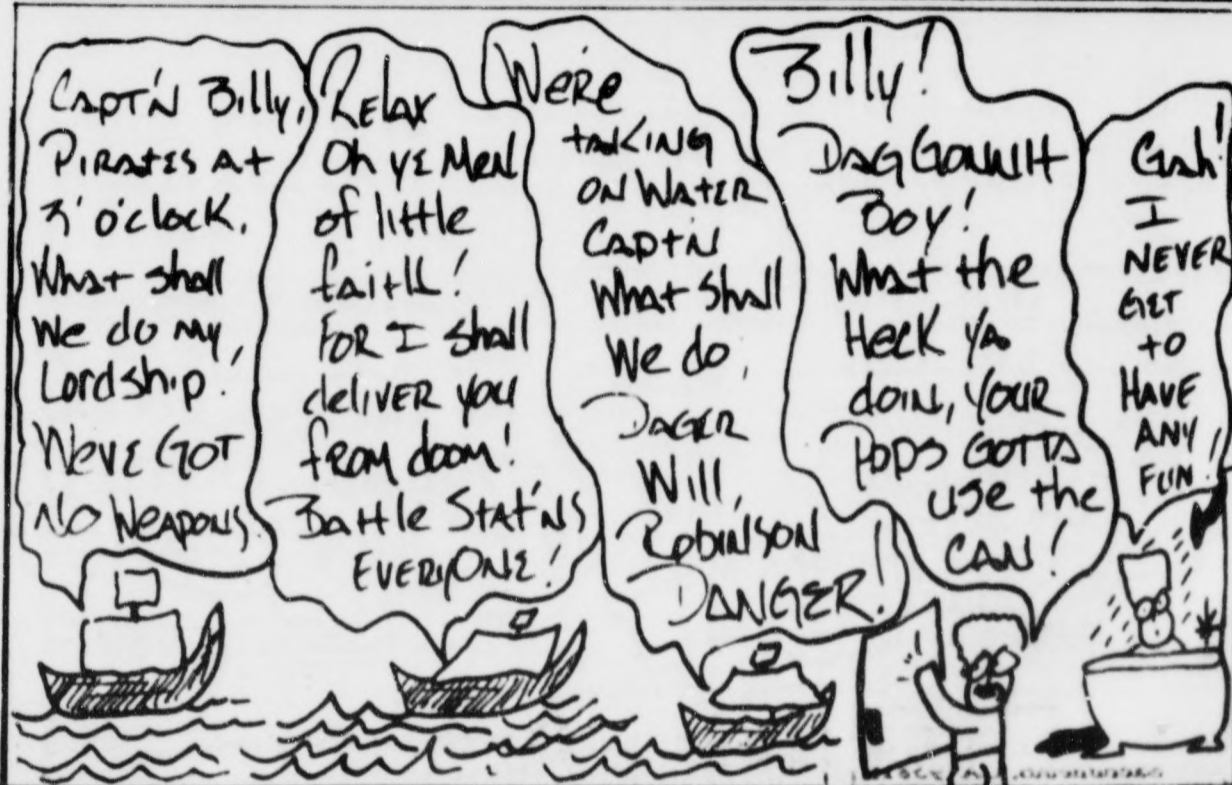 CAPT'N Billy,
PIRATES At
3' o'clock.
What shall
We do my,
Lordship!
WEVE GOT
NO WEAPONS
RELAX
Oh YE MEN
of little
faith!
FOR I shall
deliver you
from doom!
Battle Stat'ns
EVERYONE!
We're
taking
ON WATER
CAPT'N
What shall
We do,
DAGER
Will,
Robinson
DANGER!
Billy!
DAG GONNIT
Boy!
What the
Heck YA
doin, YOUR
POPS GOTTA
USE the
CAN!
Gah!
I
NEVER
GET
to
HAVE
ANY
FUN!